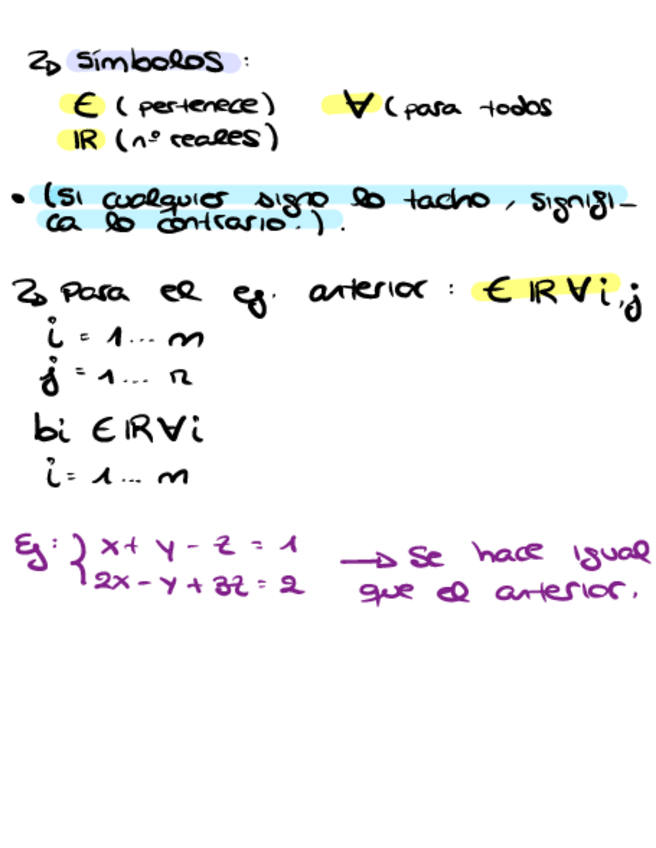 Símbolos :
∈ (pertenece) ∀ (para todos
IR (nº reales)
• (si cualquier signo lo tacho, signifi-
ca lo contrario.).
Para el ej. anterior : ∈ IR ∀ i, j
i = 1... m
j = 1... n
bi ∈ IR ∀ i
i = 1... m
Ej: { x + y - z = 1 → Se hace igual
2x - y + 3z = 2 que el anterior.